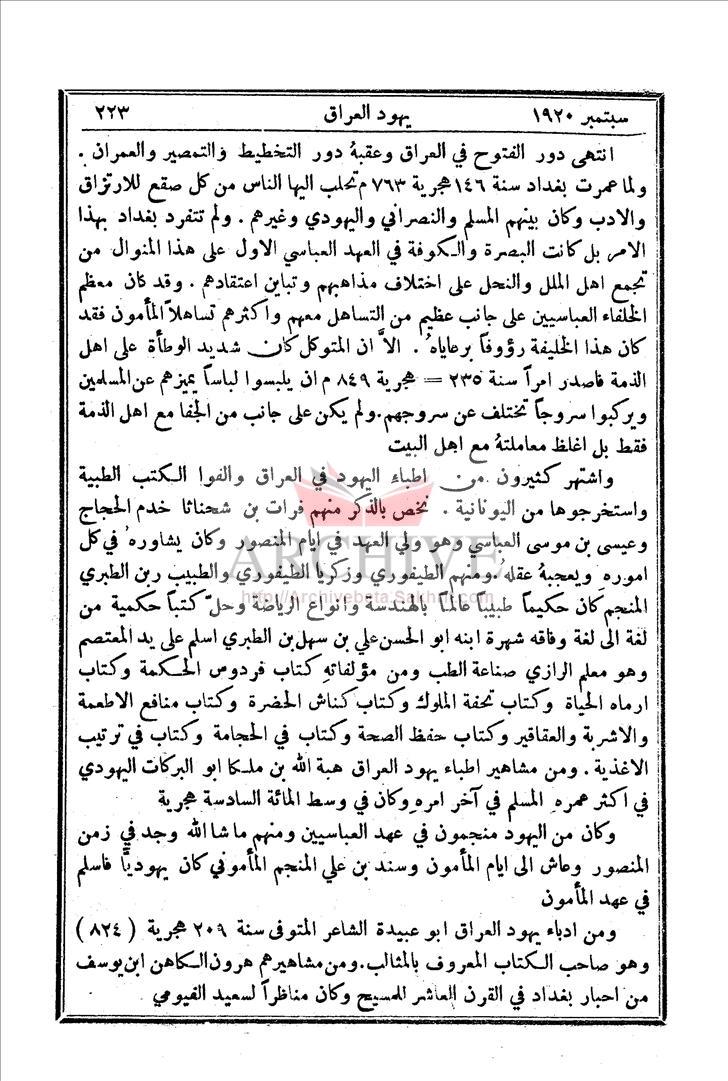 سبتمبر ١٩٢٠ يهود العراق ٢٢٣
انتهى دور الفتوح في العراق وعقبهُ دور التخطيط والتمصير والعمران .
ولما عمرت بغداد سنة ١٤٦ هجرية ٧٦٣ م تحلب اليها الناس من كل صقع للارتزاق
والادب وكان بينهم المسلم والنصراني واليهودي وغيرهم . ولم تتفرد بغداد بهذا
الامر بل كانت البصرة والكوفة في العهد العباسي الاول على هذا المنوال من
تجمع اهل الملل والنحل على اختلاف مذاهبهم وتباين اعتقادهم . وقد كان معظم
الخلفاء العباسيين على جانب عظيم من التساهل معهم واكثرهم تساهلاً المأمون فقد
كان هذا الخليفة رؤوفاً برعاياهُ . الاَّ ان المتوكل كان شديد الوطأة على اهل
الذمة فاصدر امراً سنة ٢٣٥ = هجرية ٨٤٩ م ان يلبسوا لباساً يميزهم عن المسلمين
ويركبوا سروجاً تختلف عن سروجهم.ولم يكن على جانب من الجفا مع اهل الذمة
فقط بل اغلظ معاملتهُ مع اهل البيت
واشتهر كثيرون من اطباء اليهود في العراق والفوا الكتب الطبية
واستخرجوها من اليونانية . نخص بالذكر منهم فرات بن شحناثا خدم الحجاج
وعيسى بن موسى العباسي وهو ولي العهد في ايام المنصور وكان يشاورهُ في كل
اموره ويعجبهُ عقلهُ.ومنهم الطيفوري وزكريا الطيفوري والطبيب ربن الطبري
المنجم كان حكيماً طبيباً عالماً بالهندسة وانواع الرياضة وحلّ كتباً حكمية من
لغة الى لغة وفاقه شهرة ابنه ابو الحسن علي بن سهل بن الطبري اسلم على يد المعتصم
وهو معلم الرازي صناعة الطب ومن مؤلفاتهِ كتاب فردوس الحكمة وكتاب
ارماه الحياة وكتاب تحفة الملوك وكتاب كناش الحضرة وكتاب منافع الاطعمة
والاشربة والعقاقير وكتاب حفظ الصحة وكتاب في الحجامة وكتاب في ترتيب
الاغذية . ومن مشاهير اطباء يهود العراق هبة الله بن ملكا ابو البركات اليهودي
في اكثر عمرهِ المسلم في آخر امرهِ وكان في وسط المائة السادسة هجرية
وكان من اليهود منجمون في عهد العباسيين ومنهم ماشا الله وجد في زمن
المنصور وعاش الى ايام المأمون وسند بن علي المنجم المأموني كان يهوديًّا فاسلم
في عهد المأمون
ومن ادباء يهود العراق ابو عبيدة الشاعر المتوفى سنة ٢٠٩ هجرية ( ٨٢٤ )
وهو صاحب الكتاب المعروف بالمثالب.ومن مشاهيرهم هرون الكاهن ابن يوسف
من احبار بغداد في القرن العاشر للمسيح وكان مناظراً لسعيد الفيومي
ARCHIVE
http://Archivebeta.Sakhrit.com